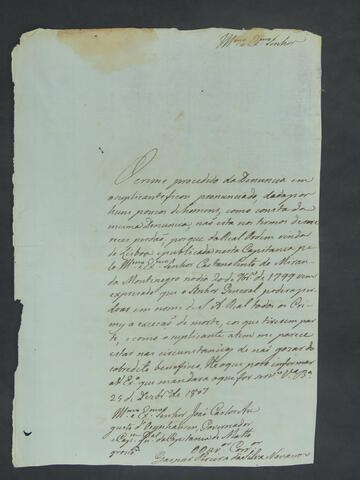 Illmo. e Exmo. Senhor
O crime procedido da Denuncia em
o suplicante ficou pronunciado, dada por
huns poucos de homens, como consta da
mesma Denuncia, não esta nos termos de me
recer perdão, porque da Real Ordem vinda
de Lisboa e publicada nesta Capitania pe
lo Illmo. e Exmo. Senhor Caetano Pinto de Miran
da Montenegro no dia 20 de de 1799 vem
expressado que o Senhor General poderá per
doar em nome de S. A. Real todos os Cri
mes a exceção de morte, e os que tiverem par
te, e como o suplicante atem me parece
estar nas circunstancias de não gozar do
sobredito beneficio. He o que posso informar
a V. Exa. que mandara o que for servido. Va. Ba.
25 de Dezbro. de 1801
Illmo. e Exmo. Senhor José Carlos Au
gusto d'Oeynhausem, Governador
e Capm. Gal. da Capitania de Matto
grosso
O Ouvor. Corror.
Gaspar Pereira da Silva Navarro